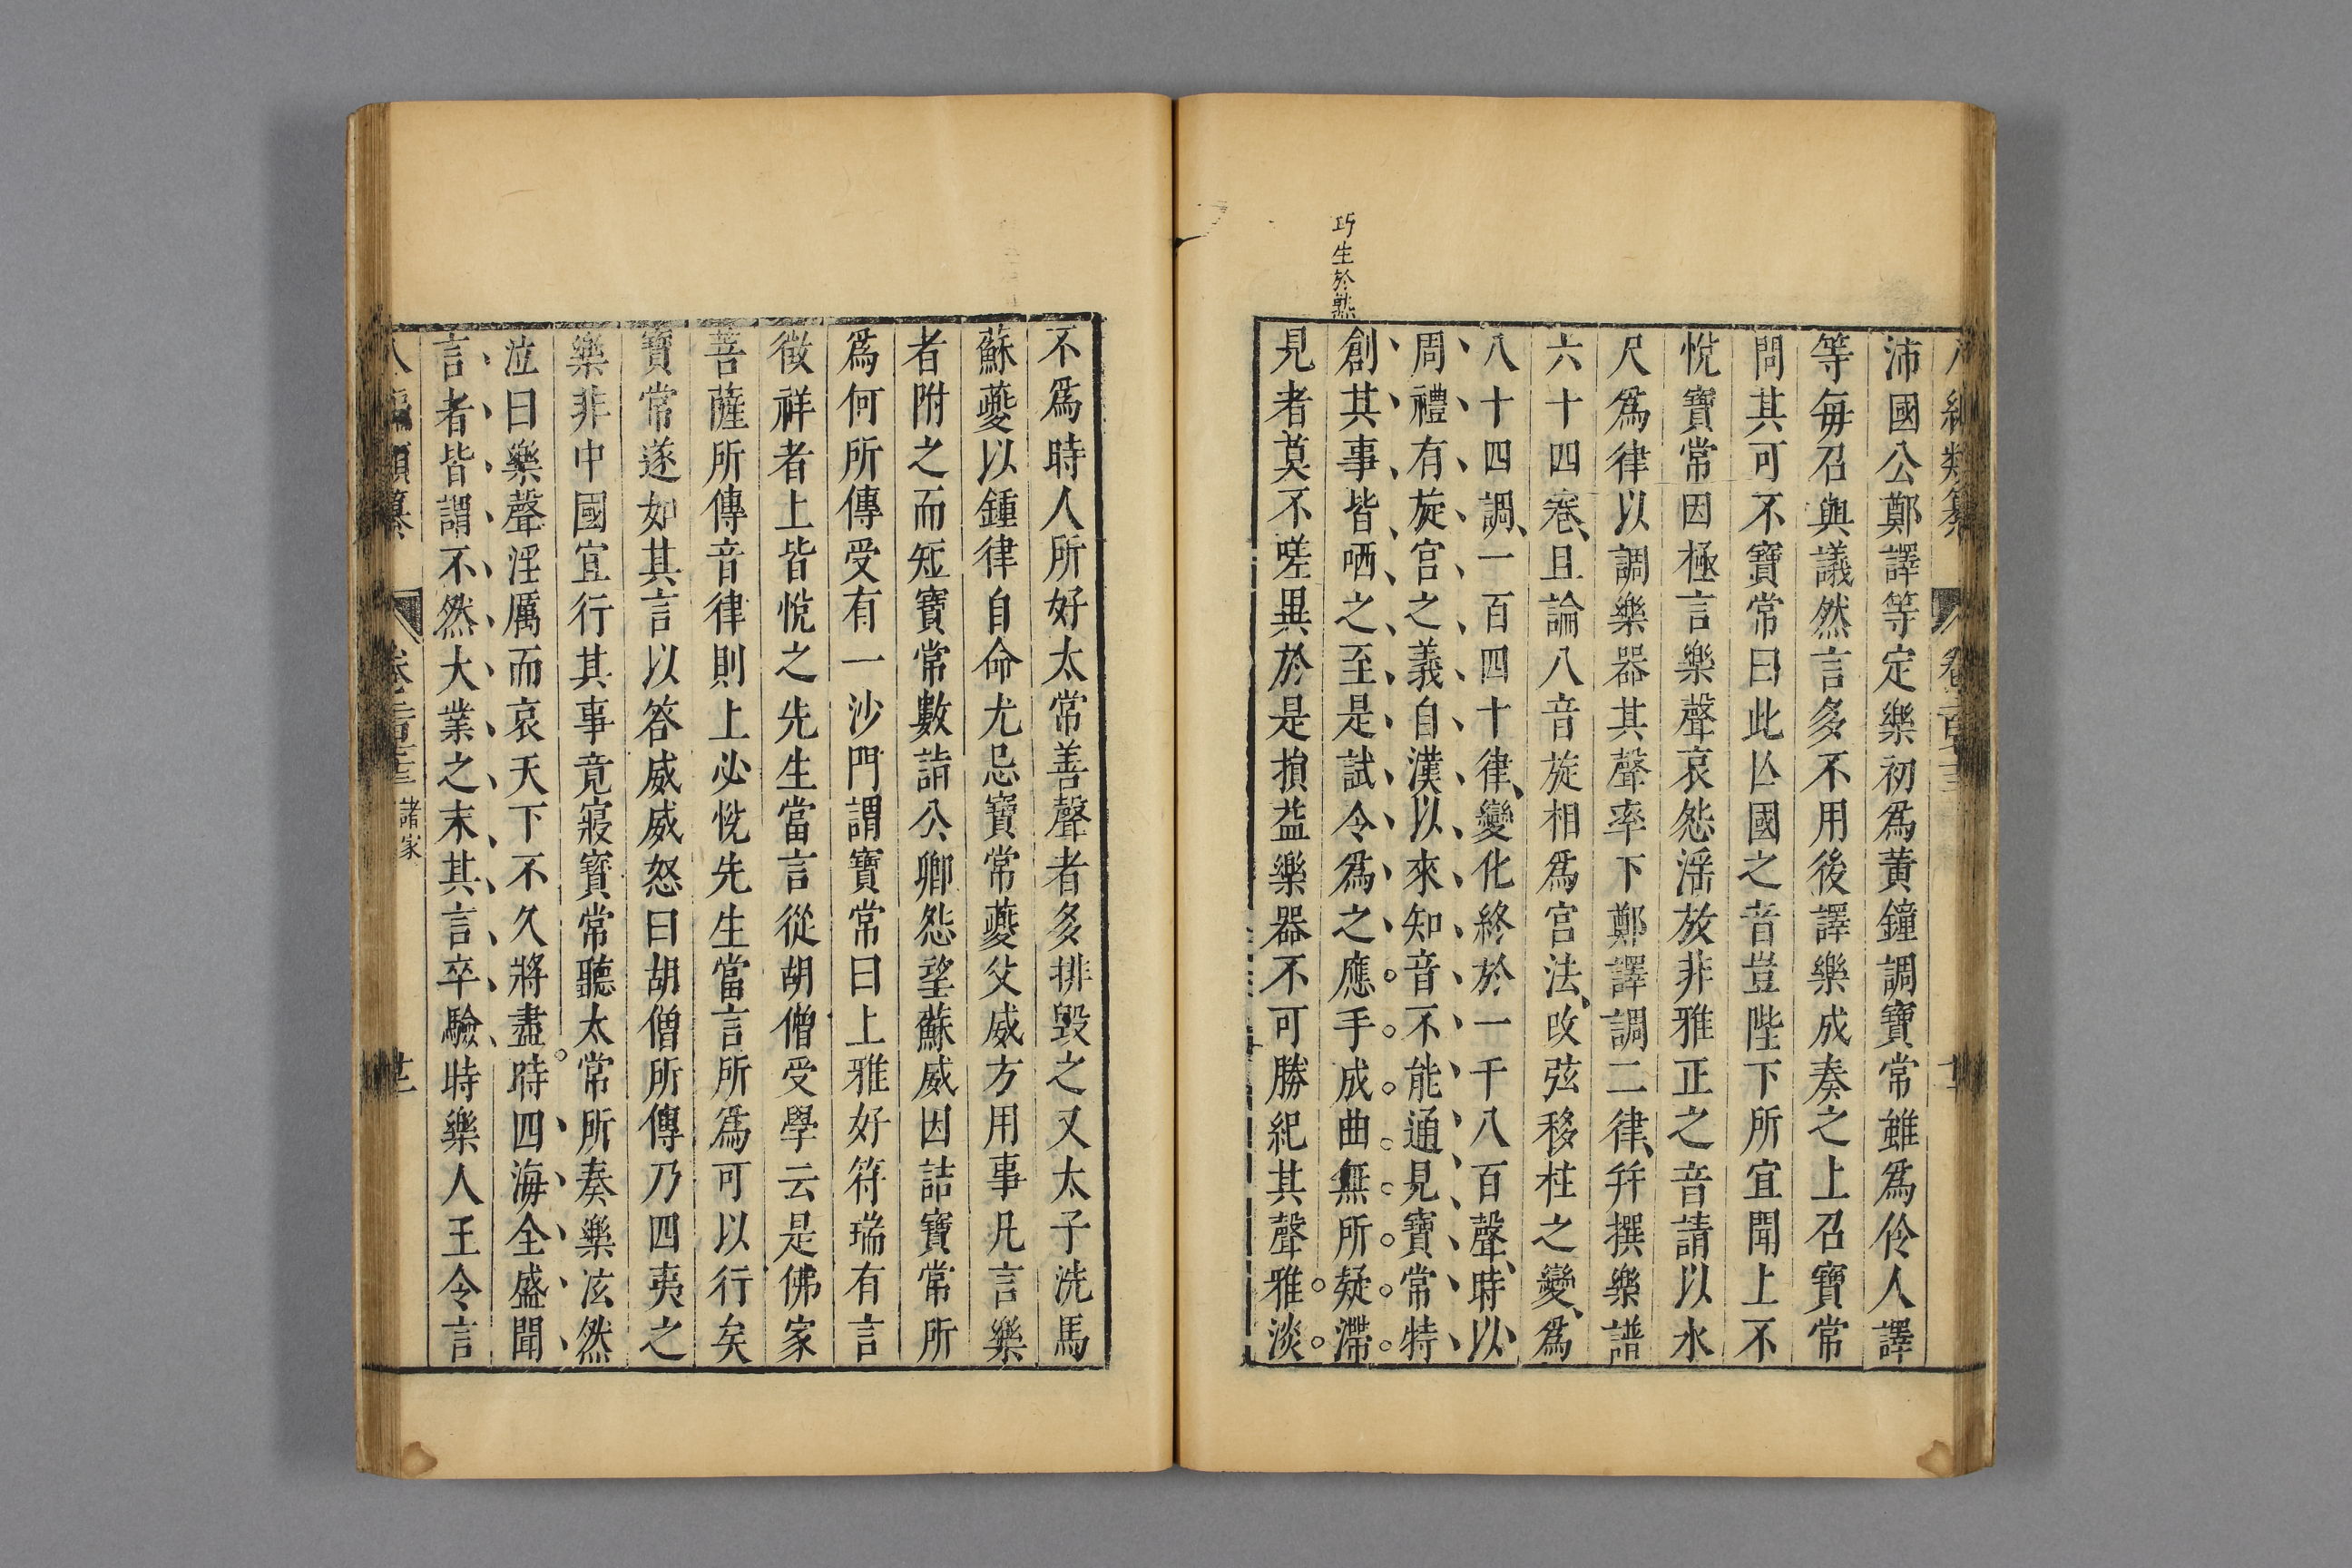 巧生於熟
沛國公鄭譯等定樂初爲黃鐘調寶常雖爲伶人譯
等每召與議然言多不用後譯樂成奏之上召寶常
問其可不寶常曰此亾國之音豈陛下所宜聞上不
悅寶常因極言樂聲哀怨淫放非雅正之音請以水
尺爲律以調樂器其聲率下鄭譯調二律幷撰樂譜
六十四卷且論八音旋相爲宮法改弦移柱之變爲
八十四調一百四十律變化終於一千八百聲時以
周禮有旋宮之義自漢以來知音不能通見寶常特
創其事皆哂之至是試令爲之應手成曲無所疑滯
見者莫不嗟異於是損益樂器不可勝紀其聲雅淡
不爲時人所好太常善聲者多排毀之又太子洗馬
蘇夔以鍾律自命尤忌寶常夔父威方用事凡言樂
者附之而短寶常數詣公卿怨望蘇威因詰寶常所
爲何所傳受有一沙門謂寶常曰上雅好符瑞有言
徵祥者上皆悅之先生當言從胡僧受學云是佛家
菩薩所傳音律則上必悅先生當言所爲可以行矣
寶常遂如其言以答威威怒曰胡僧所傳乃四夷之
樂非中國宜行其事竟寢寶常聽太常所奏樂泫然
泣曰樂聲淫厲而哀天下不久將盡時四海全盛聞
言者皆謂不然大業之末其言卒驗時樂人王令言
諸家